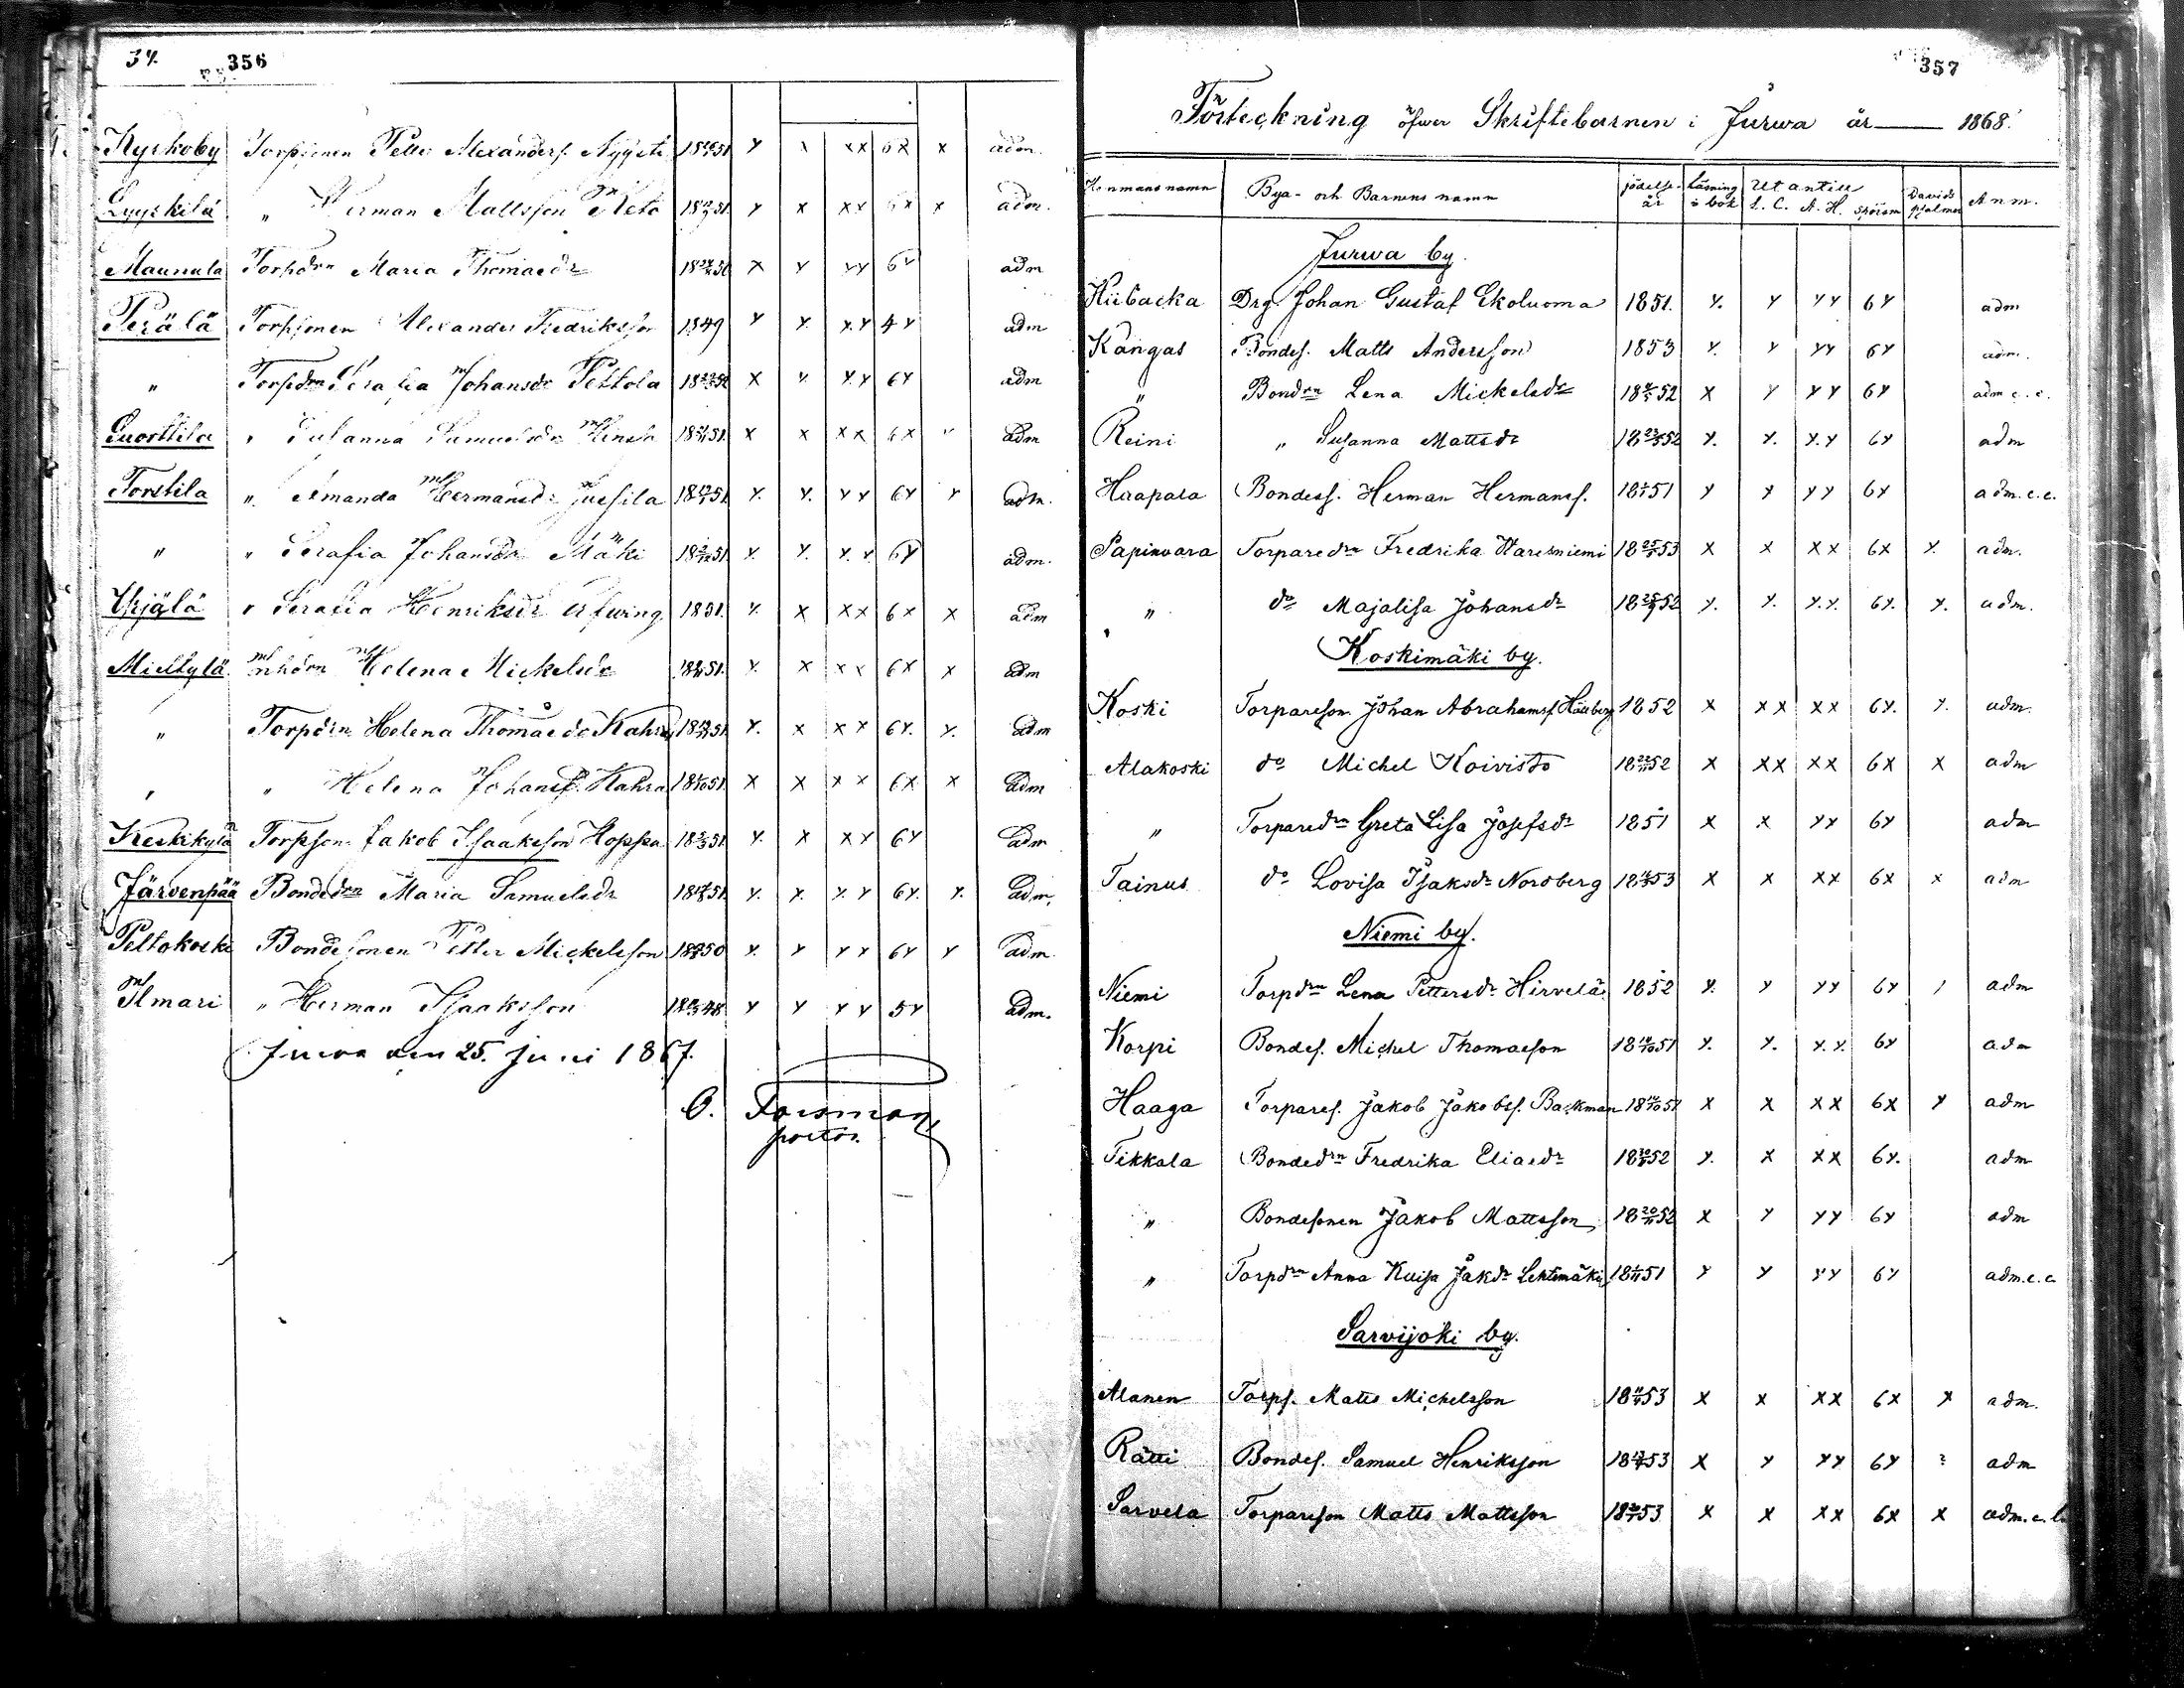 34. 356
Kyrkoby Torpsonen Petter Alexanders. Nyysti 1851 y x xx 6x x adm.
Lyyskilä " Herman Mattsson Keto 1851. y x xx 6x x adm.
Maunula Torpdrn Maria Thomaedr 1850 x y yy 6y adm
Perälä Torpsonen Alexander Fredriksson 1849 y y. y.y 4y adm
" Torpdrn Serafia Johansdr Pettola 1852 x y. y.y 6y adm
Luorttila " Susanna Samuelsdr 1851. x x xx 6x " adm
Torstila " Amanda Hermansdr Jussila 1851. y. y. yy 6y y adm.
" " Serafia Johansdr Mäki 1851. y. y. y.y. 6y adm.
Yrjälä " Serafia Henriksdr 1851. y. x xx 6x x adm
Mieltylä Helena Mickelsdr 1851. y. x xx 6x x adm
" Torpdrn Helena Thomaedr Kahra 1851. y. x xx 6y. y. adm
" " Helena Johansdr Kahra 1851. x x xx 6x x adm
Keskikylä Torpson Jakob Isaaksson Hoppa 1851. y. x xy 6y adm
Järvenpää Bondedrn Maria Samuelsdr 1851. y. y. y.y 6y. y. adm.
Peltokoski Bondesonen Petter Mickelsson 1850 y. y yy 6y y adm.
Ilmari " Herman Isaaksson 1848 y y yy 5y adm.
Jurva den 25. Juni 1867.
O. Forsman
pastor.
357
Förteckning öfwer Skriftebarnen i Jurwa år — 1868.
Hemmans namn Bya- och Barnens namn födelse-år Läsning i bok Utantill L. C. A. H. Spörsm Davids psalmer Anm.
Jurwa by.
Kiibacka Drg. Johan Gustaf Ekoluoma 1851. y. y yy 6y adm
Kangas Bondes. Matts Andersson 1853 y. y yy 6y adm.
" Bonddrn Lena Mickelsdr 1852 x y yy 6y adm c.c.
Reini " Susanna Mattsdr 18 23/3 52 y. y. y.y 6y adm
Haapala Bondess. Herman Hermanss. 1851 y y yy 6y adm.c.c.
Papinvara Torparedrn Fredrika Haresniemi 1853 x x xx 6x y. adm.
" do Majalisa Johansdr 1852 y. y. y.y. 6y. y. adm.
Koskimäki by.
Koski Torpareson Johan Abrahamss. Hällberg 1852 x xx xx 6y. y. adm.
Alakoski do Michel Koivisto 1852 x xx xx 6x x adm
" Torparedrn Greta Lisa Josefsdr 1851 x x yy 6y adm
Tainus do Lovisa Isaksdr Nordberg 1853 x x xx 6x x adm
Niemi by.
Niemi Torpdrn Lena Pettersdr Hirvelä 1852 y. y yy 6y / adm
Korpi Bondes. Michel Thomaeson 18 18/10 51 y. y. y.y. 6y adm
Haaga Torpares. Jakob Jakobss. Backman 1851 x x xx 6x y adm
Tikkala Bondedrn Fredrika Eliaedr 1852 y. x xx 6y. adm
" Bondesonen Jakob Mattsson 1852 x y yy 6y adm
" Torpdrn Anna Kaisa Jakdr Lehtimäki 1851 y y yy 6y adm.c.c.
Sarvijoki by.
Alanen Torps. Matts Michelsson 1853 x x xx 6x x adm.
Rätti Bondes. Samuel Henriksson 1853 x y yy 6y adm
Sarvela Torpareson Matts Mattsson 1853 x x xx 6x x adm.c.l